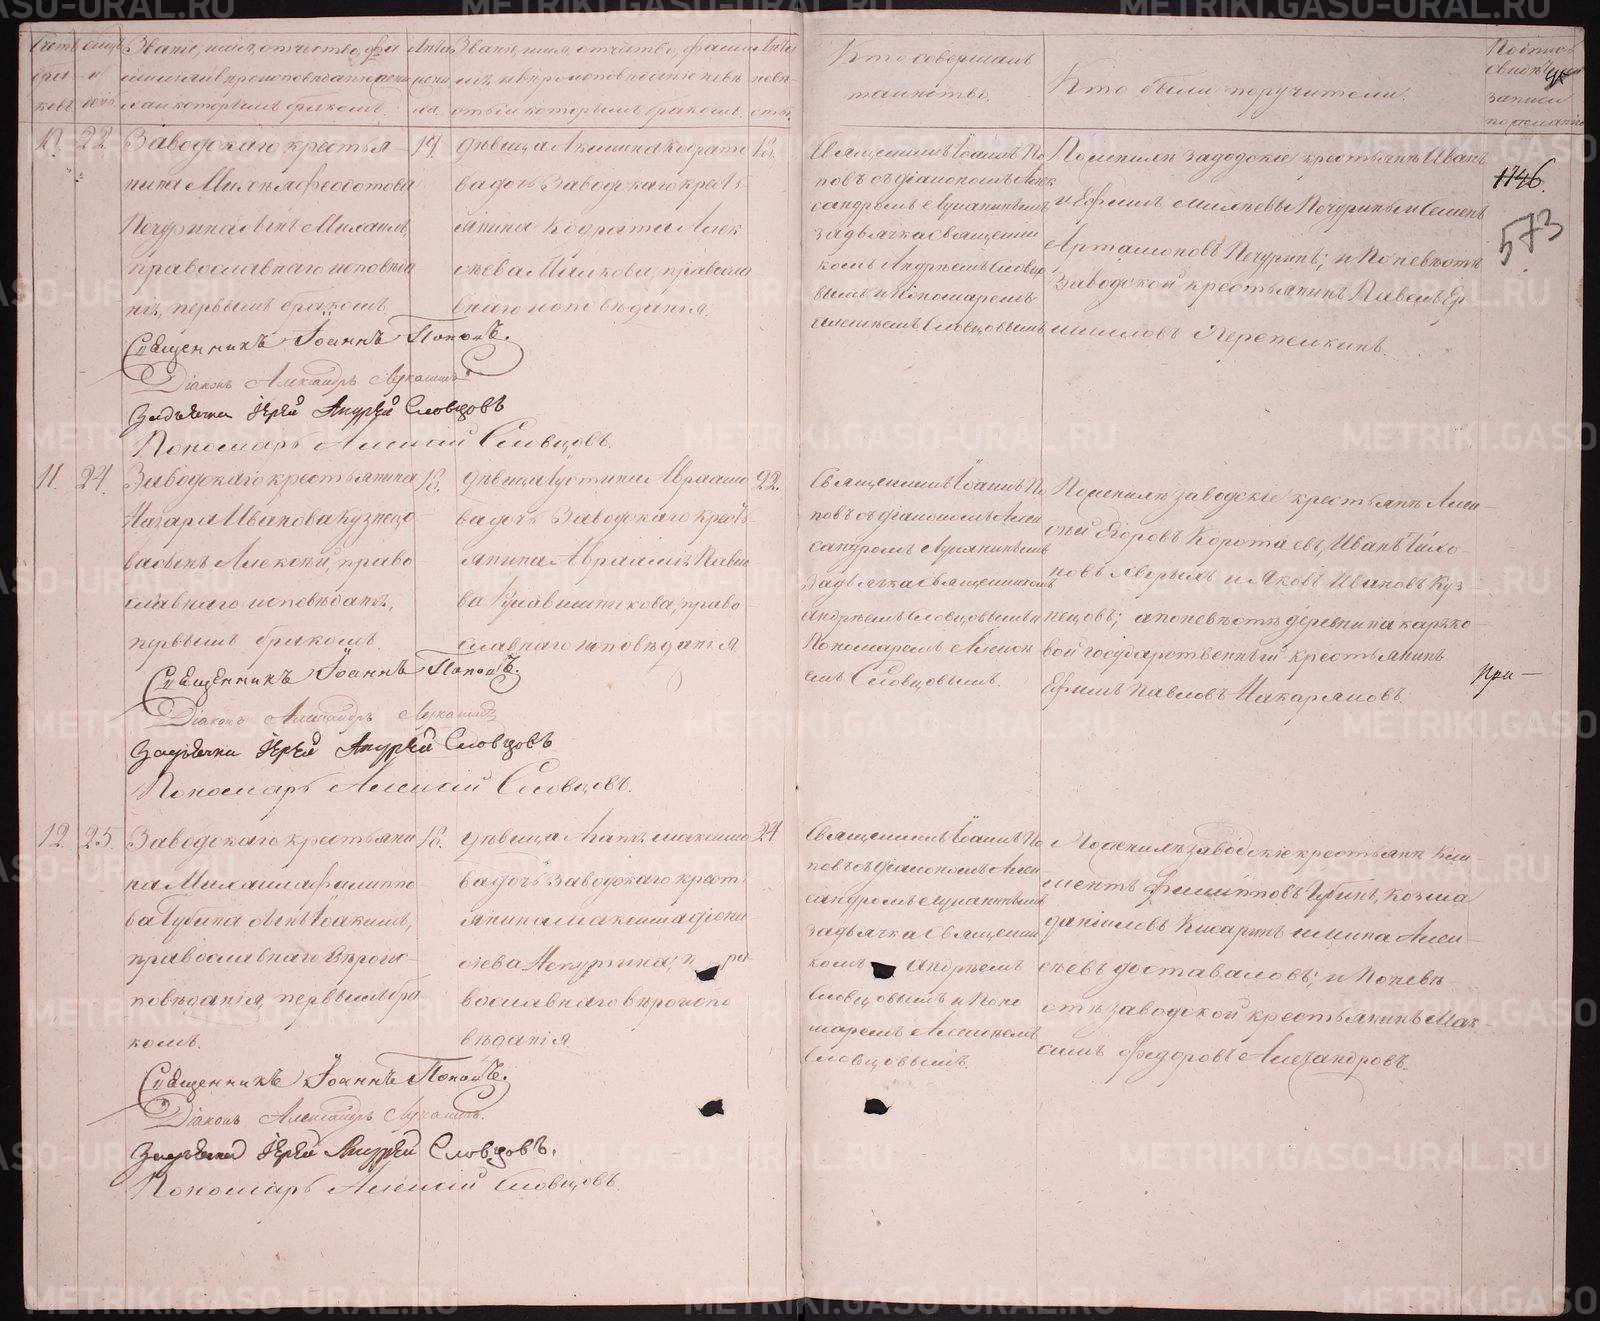 Счетъ
браковъ
Мѣсяцъ и день
Званіе, имя, отчество, фа
милія и вѣроисповѣданіе жени
ха и которымъ бракомъ.
Лѣта
жени
ха.
Званіе, имя, отчество, фами
лія и вѣроисповѣданіе невѣ
сты и которымъ бракомъ.
Лѣта
невѣ
сты.
Кто совершалъ
таинство.
Кто были поручители.
Подпись
свидѣтелей
записи
по желанію
10.
22.
Заводскаго крестья
нина Михѣя Феодотова
Печурина сынъ Михаилъ,
православнаго исповѣда
нія, первымъ бракомъ.
19.
дѣвица Акилина Кодрато
ва дочь Заводскаго крестъ
янина Кодрата Алек
сѣева Малкова, правосла
внаго исповѣданія.
18.
Священникъ Іоаннъ По
повъ съ діакономъ Алек
сандромъ Лукашинымъ
за дьячка священни
комъ Андреемъ Словцо
вымъ и Пономаремъ
Алексѣемъ Словцовымъ
По женихѣ заводскіе крестьяне Иванъ
и Ефимъ Михѣевы Печурины и Семенъ
Артамоновъ Печуринъ; и по невѣстѣ
Заводской крестьянинъ Павелъ Ер
миловъ Черепенкинъ.
1146.
573
Священникъ Іоаннъ Поповъ.
Діаконъ Александръ Лукашинъ
За дьячка Іерей Андрей Словцовъ
Пономарь Алексѣй Словцовъ.
11.
24.
Заводскаго крестьянина
Назара Иванова Кузнецо
ва сынъ Алексѣй, право
славнаго исповѣданія,
первымъ бракомъ.
18.
дѣвица Іустина Авраамо
ва дочь Заводскаго крестъ
янина Авраамія Павло
ва Кулавшникова, право
славнаго исповѣданія
22.
Священникъ Іоаннъ По
повъ съ діакономъ Алек
сандромъ Лукашинымъ
за дьячка священникомъ
Андреемъ Словцовымъ и
Пономаремъ Алексѣ
емъ Словцовымъ.
По женихѣ заводскіе крестьяне Алек
сѣй Егоровъ Коротаевъ, Иванъ Тихо
новъ и Яковъ Ивановъ Куз
нецовъ; а по невѣстѣ деревни Макарько
вой государственный крестьянинъ
Ефимъ Павловъ Макаряновъ.
При —
Священникъ Іоаннъ Поповъ.
Діаконъ Александръ Лукашинъ
За дьячка Іерей Андрей Словцовъ
Пономарь Алексѣй Словцовъ.
12.
25.
Заводскаго крестьяни
на Михаила Филиппо
ва Губина сынъ Іоакимъ,
православнаго вѣроис
повѣданія, первымъ бра
комъ.
18.
дѣвица Агапія Максимо
ва дочь Заводскаго крест
янина Максима Діони
сіева Печурина, п ра
вославнаго вѣроиспо
вѣданія
24
Священникъ Іоаннъ По
повъ съ діакономъ Алек
сандромъ Лукашинымъ
за дьячка священни
комъ Андреемъ
Словцовымъ и Поно
маремъ Алексѣемъ
Словцовымъ.
По женихѣ заводскіе крестьяне Кли
ментъ Филипповъ Губинъ, Козма
Даніиловъ Кисаринъ и Мина Алек
сѣевъ Доставаловъ; и по невѣ
стѣ заводской крестьянинъ Мак
симъ Федоровъ Александровъ.
Священникъ Іоаннъ Поповъ.
Діаконъ Александръ Лукашинъ.
За дьячка Іерей Андрей Словцовъ.
Пономарь Алексѣй Словцовъ.
METRIKI.GASO-URAL.RU